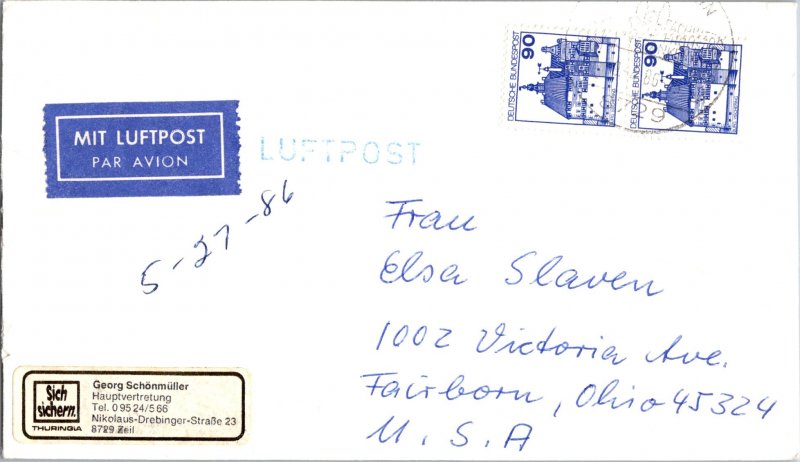 90
DEUTSCHE BUNDESPOST
90
DEUTSCHE BUNDESPOST
8729
MIT LUFTPOST
PAR AVION
LUFTPOST
5-27-86
Frau
Elsa Slaven
1002 Victoria Ave.
Fairborn, Ohio 45324
U.S.A
Sich
sichern.
THURINGIA
Georg Schönmüller
Hauptvertretung
Tel. 09524/566
Nikolaus-Drebinger-Straße 23
8729 Zeil